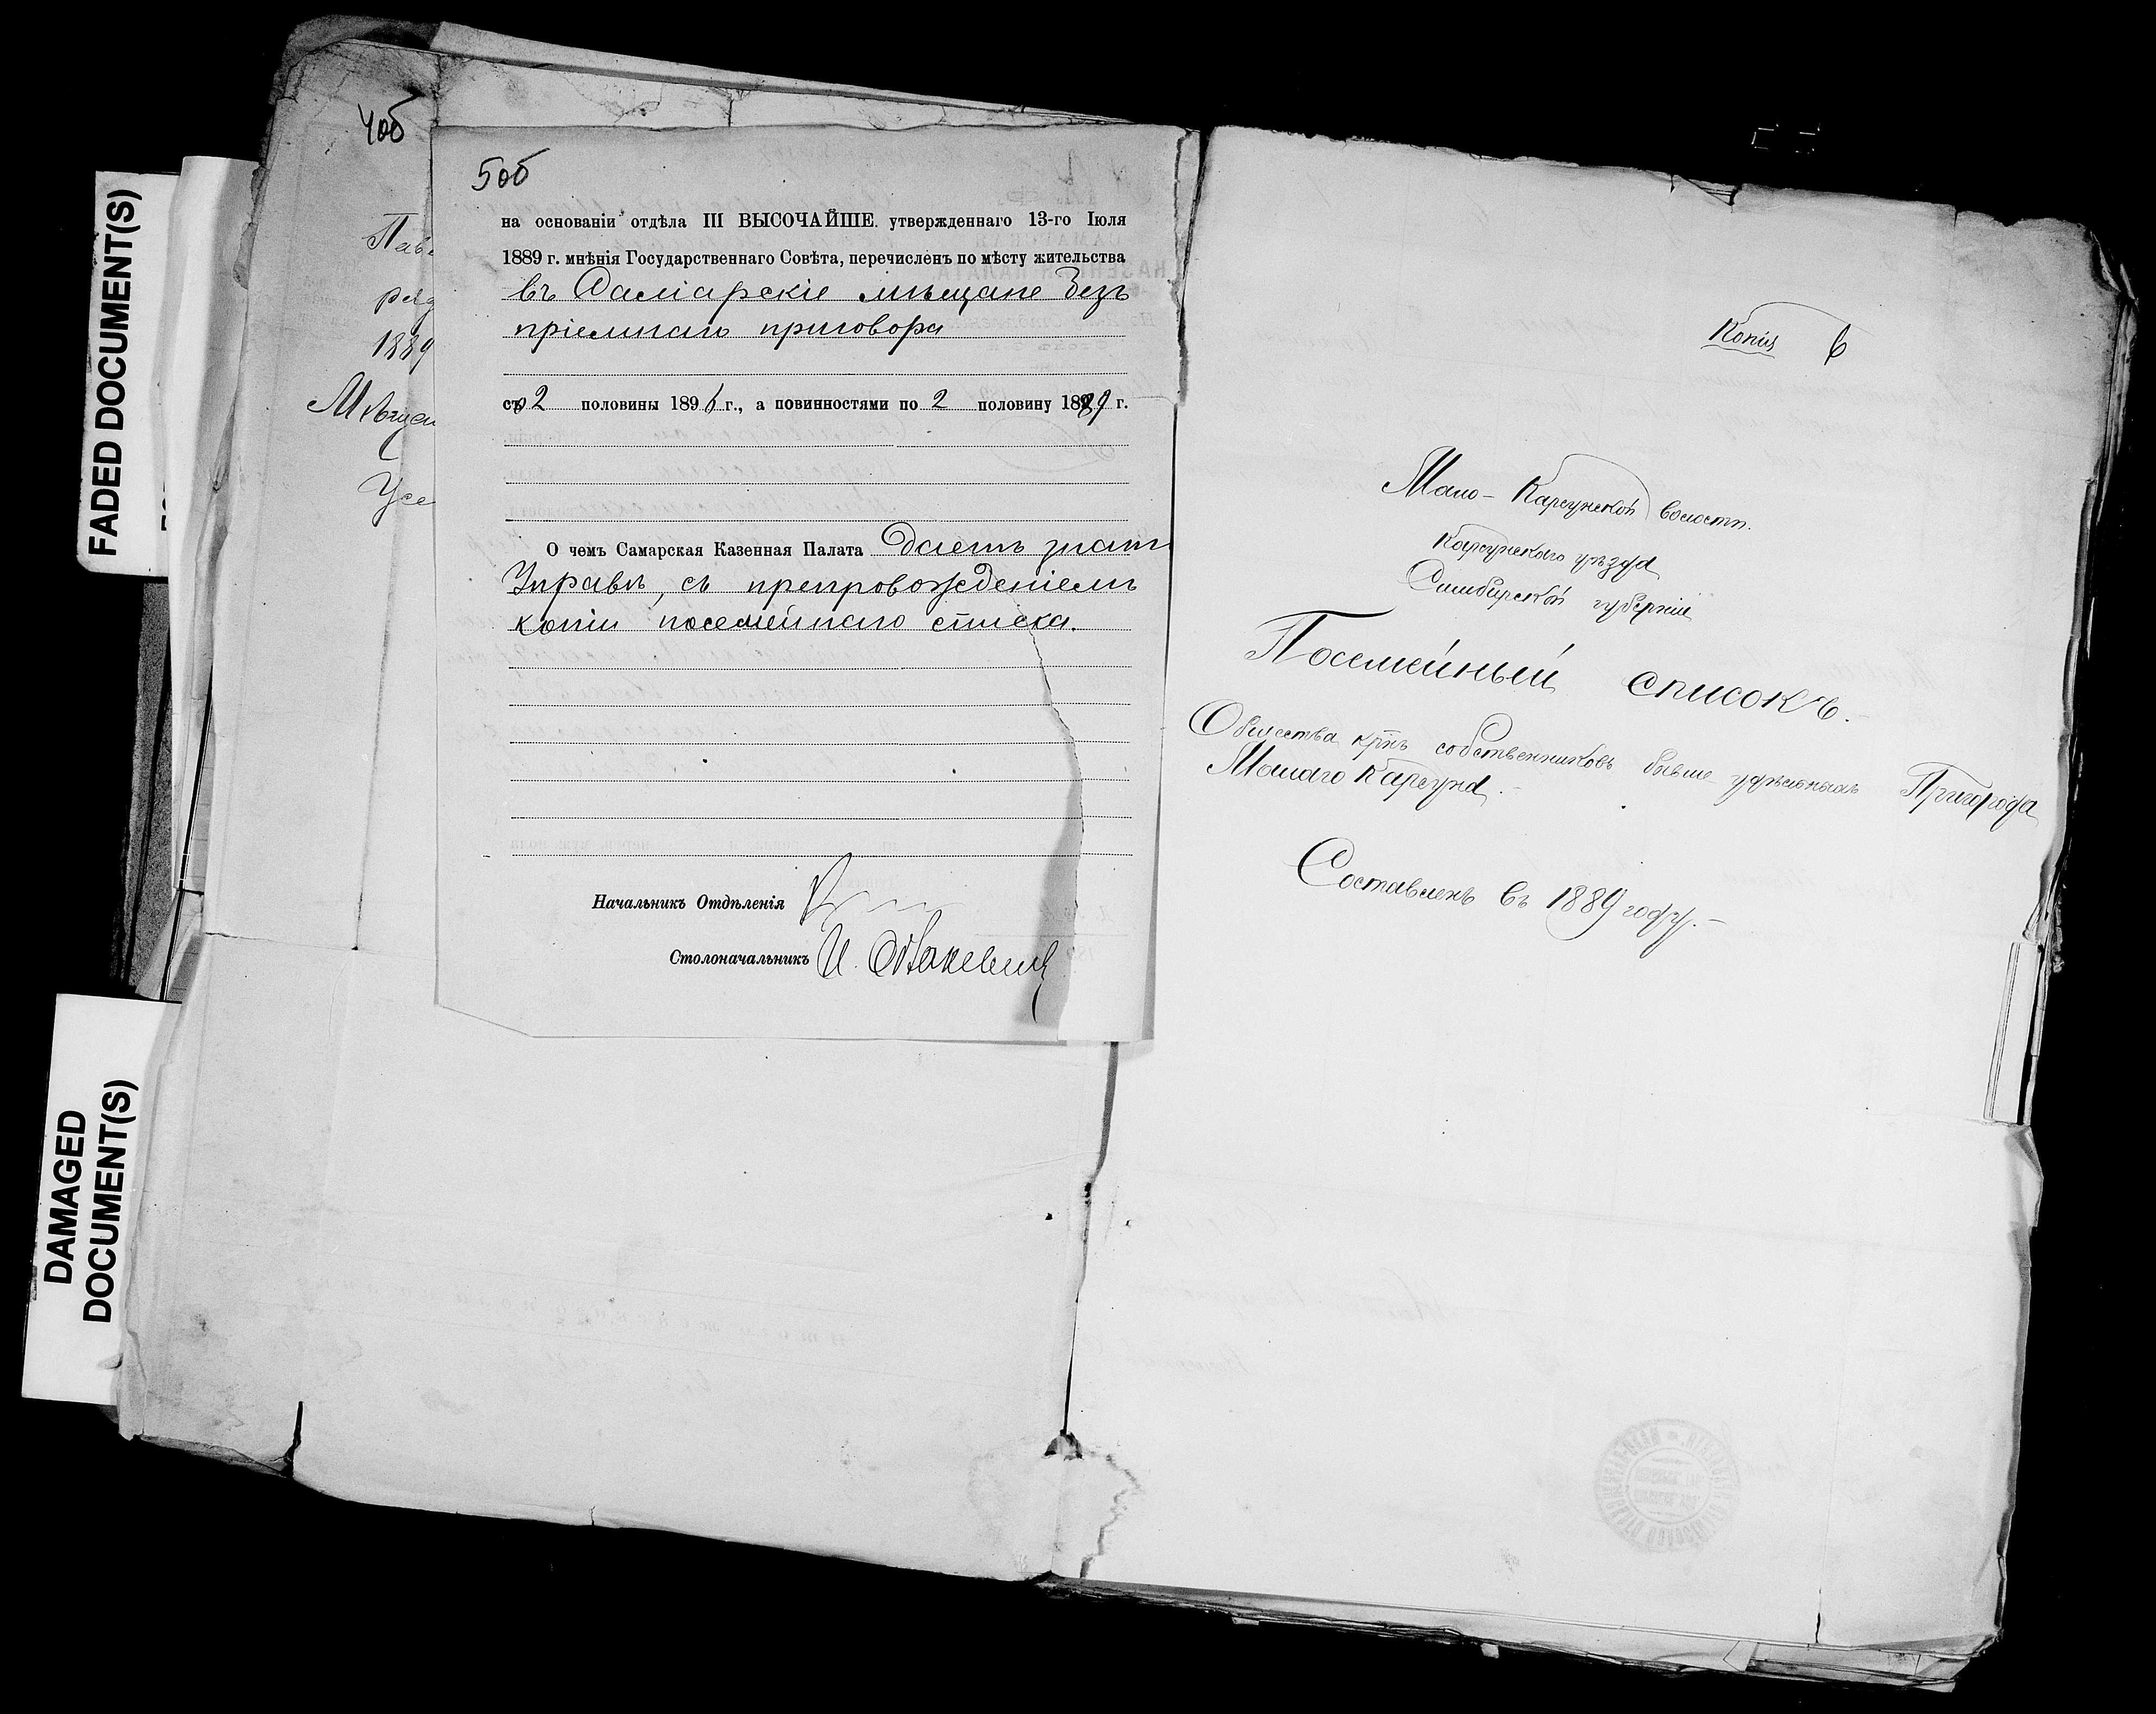 FADED DOCUMENT(S)
DAMAGED
DOCUMENT(S)
4об
1889
5об
на основаніи отдѣла III ВЫСОЧАЙШЕ утвержденнаго 13-го Іюля
1889 г. мнѣнія Государственнаго Совѣта, перечисленъ по мѣсту жительства
въ Самарскіе мѣщане безъ
пріемнаго приговора
съ 2 половины 189 г., а повинностями по 2 половину 18 г.
О чемъ Самарская Казенная Палата даетъ знать
Управѣ, съ препровожденіемъ
копіи посемейнаго списка.
Начальникъ Отдѣленія
Столоначальникъ И.
Копія 6
Мало-Карсунской волости.
Карсунскаго уѣзда
Симбирской губерніи
Посемейный списокъ.
Общества крнъ собственниковъ бывше удѣльныхъ Пригорода
Малаго Карсуна.-
Составленъ въ 1889 году.-